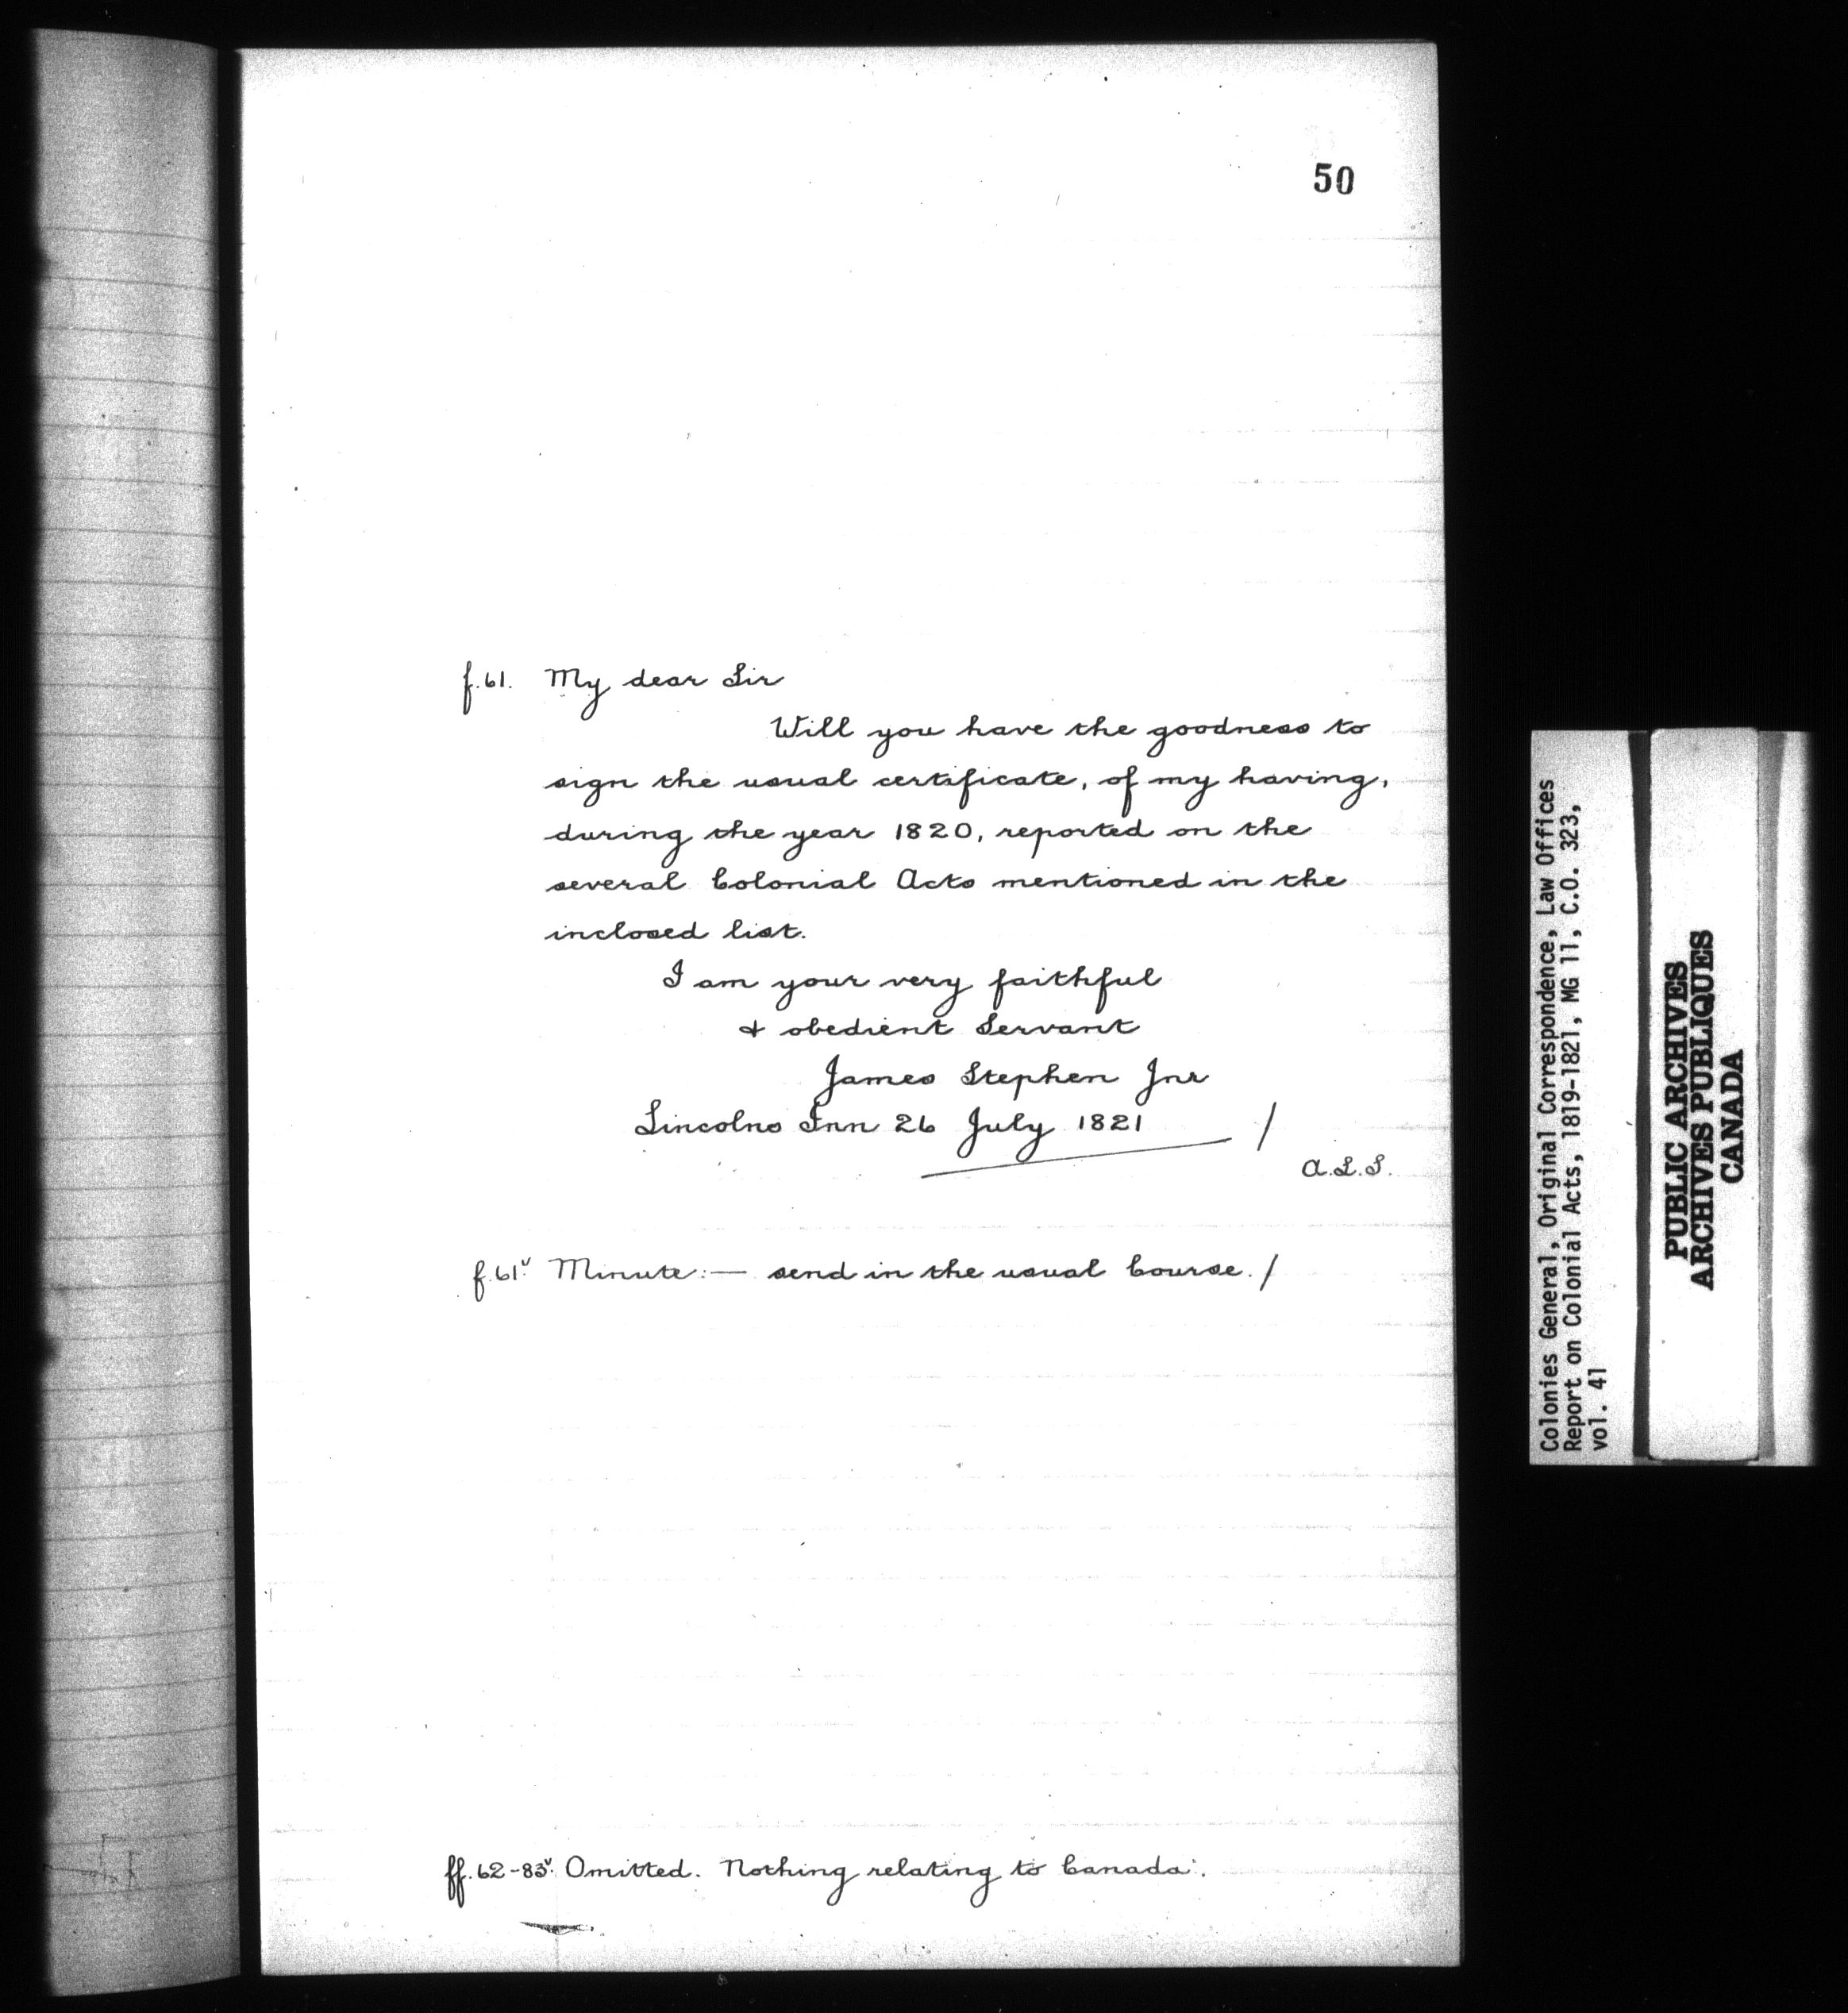 50
f.61. My dear Sir
Will you have the goodness to
sign the usual certificate, of my having,
during the year 1820, reported on the
several Colonial Acts mentioned in the
inclosed list.
I am your very faithful
& obedient Servant
James Stephen Jnr
Lincolns Inn 26 July 1821 /
A.L.S.
f.61v Minute:— send in the usual Course. /
ff.62-83v. Omitted. Nothing relating to Canada.
Colonies General, Original Correspondence, Law Offices
Report on Colonial Acts, 1819-1821, MG 11, C.O. 323,
vol. 41
PUBLIC ARCHIVES
ARCHIVES PUBLIQUES
CANADA